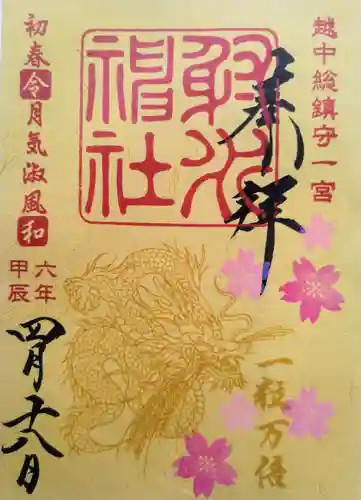 越中総鎮守一宮
奉拝
射水神社
初春令月気淑風和
六年
甲辰
四月十八日
一粒万倍